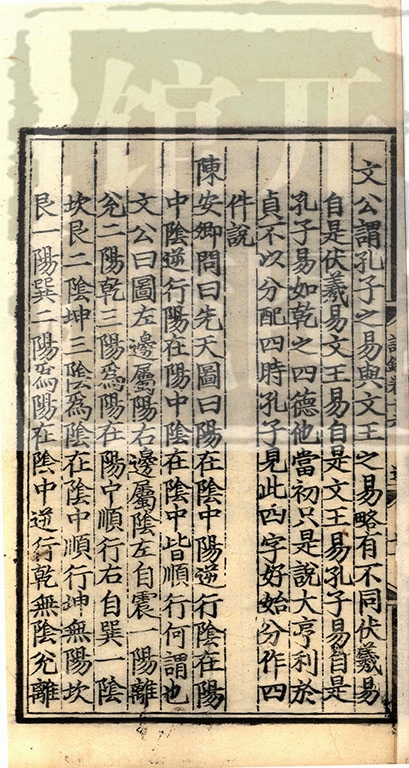 文公謂孔子之易與文王之易略有不同伏羲易
自是伏羲易文王易自是文王易孔子易自是
孔子易如乾之四德他當初只是說大亨利於
貞不以分配四時孔子見此四字好始分作四
件說
陳安卿問曰先天圖曰陽在陰中陽逆行陰在陽
中陰逆行陽在陽中陰在陰中皆順行何謂也
文公曰圖左邊屬陽右邊屬陰左自震一陽離
兊二陽乾三陽爲陽在陽中順行右自巽一陰
坎艮二陰坤三陰爲陰在陰中順行坤無陽坎
艮一陽巽二陽爲陽在陰中逆行乾無陰兊離